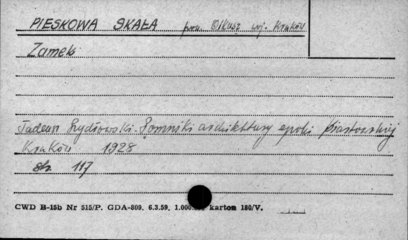 PIESKOWA SKAŁA pow. Olkusz woj. Kraków
Zamek
Tadeusz Szydłowski. Pomniki architektury epoki piastowskiej
Kraków 1928
str. 117
CWD B-15b Nr 515/P. GDA-809. 6.3.59. 1.000. karton 180/V.